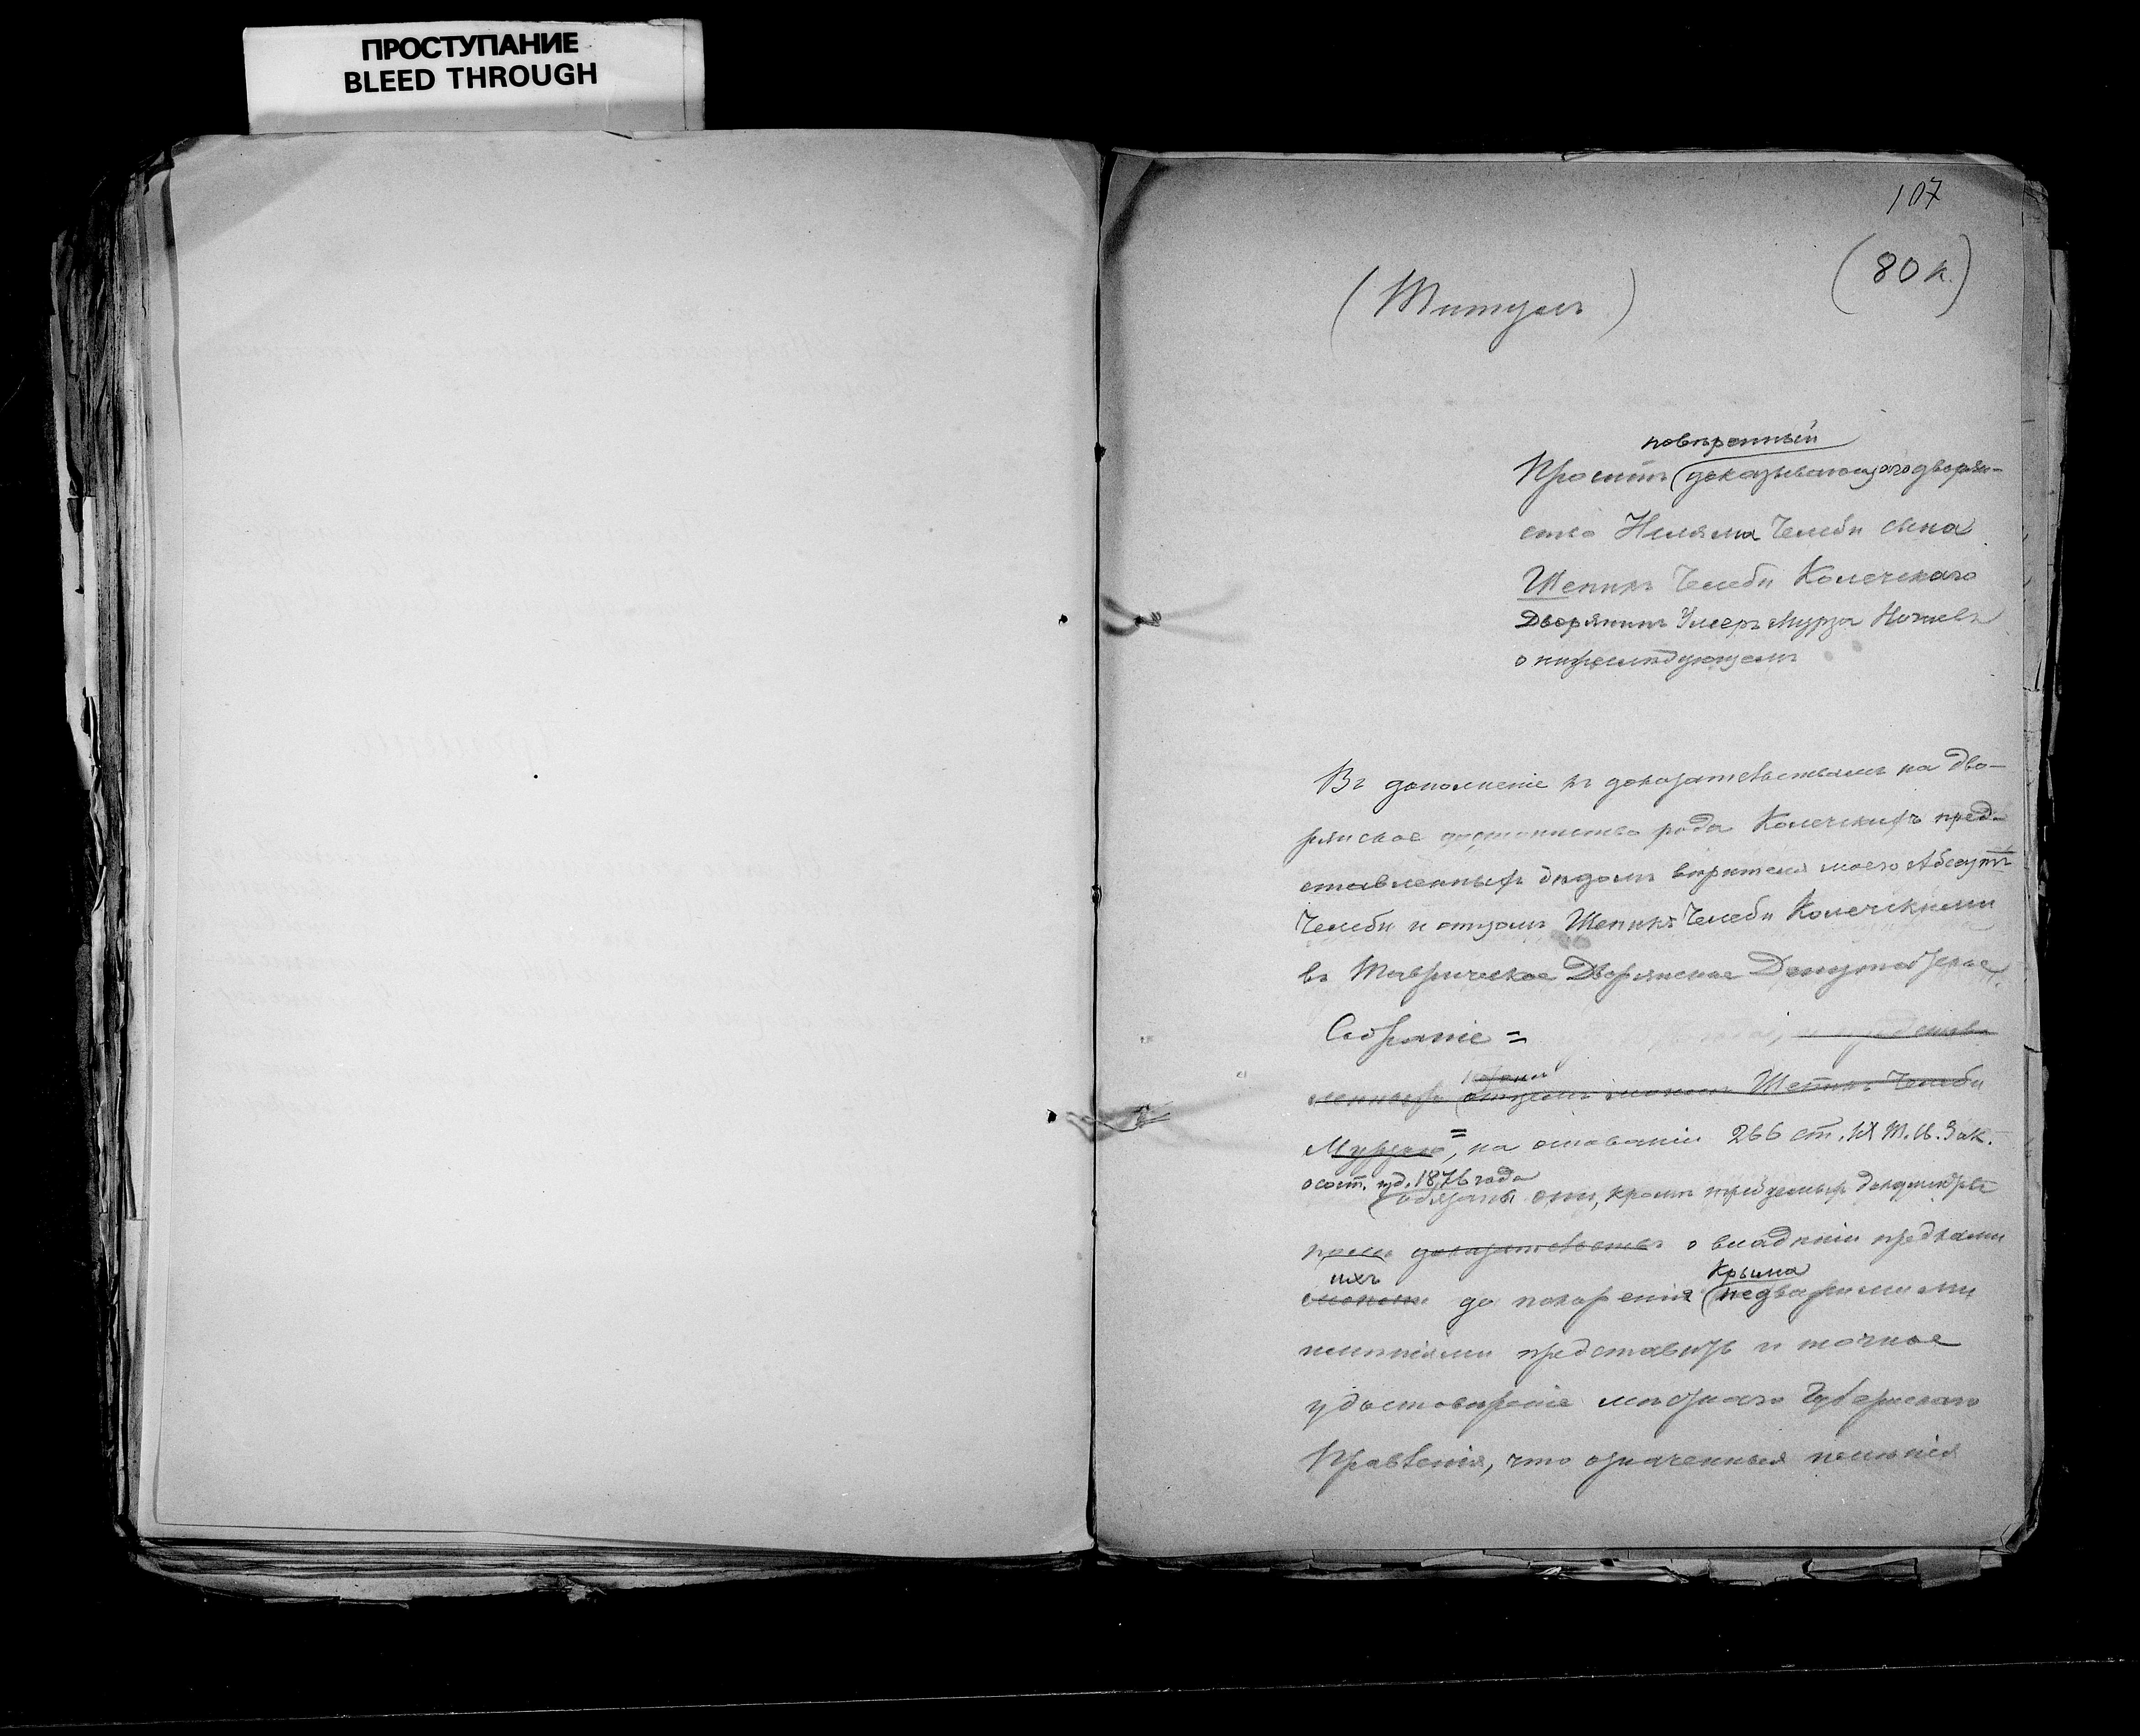 ПРОСТУПАНИЕ
BLEED THROUGH
107
(80 к.)
(Титулъ)
повѣренный
Проситъ доказывающаго дворян-
ство Челеби сына
Челеби Колечскаго
Дворянинъ Умеръ Мурза
о нижеслѣдующемъ
Въ дополненіе къ доказательствамъ на дво-
рянское достоинство рода Колечскихъ пред-
ставленныхъ дѣдомъ вѣрителя моего
Челеби и отцомъ Челеби Колечскими
въ Таврическое Дворянское Депутатское
Собраніе =
отцомъ моимъ Челеби
Мурзою =, на основаніи 266 ст. IX т. Св. Зак.
о сост. изд. 1876 года
обязаны они, кромѣ
доказательствъ о владѣніи предками
ихъ Крыма
моими до покоренія недвижимыми
имѣніями представить и точное
удостовѣреніе мѣстнаго Губернскаго
Правленія, что означенныя имѣнія